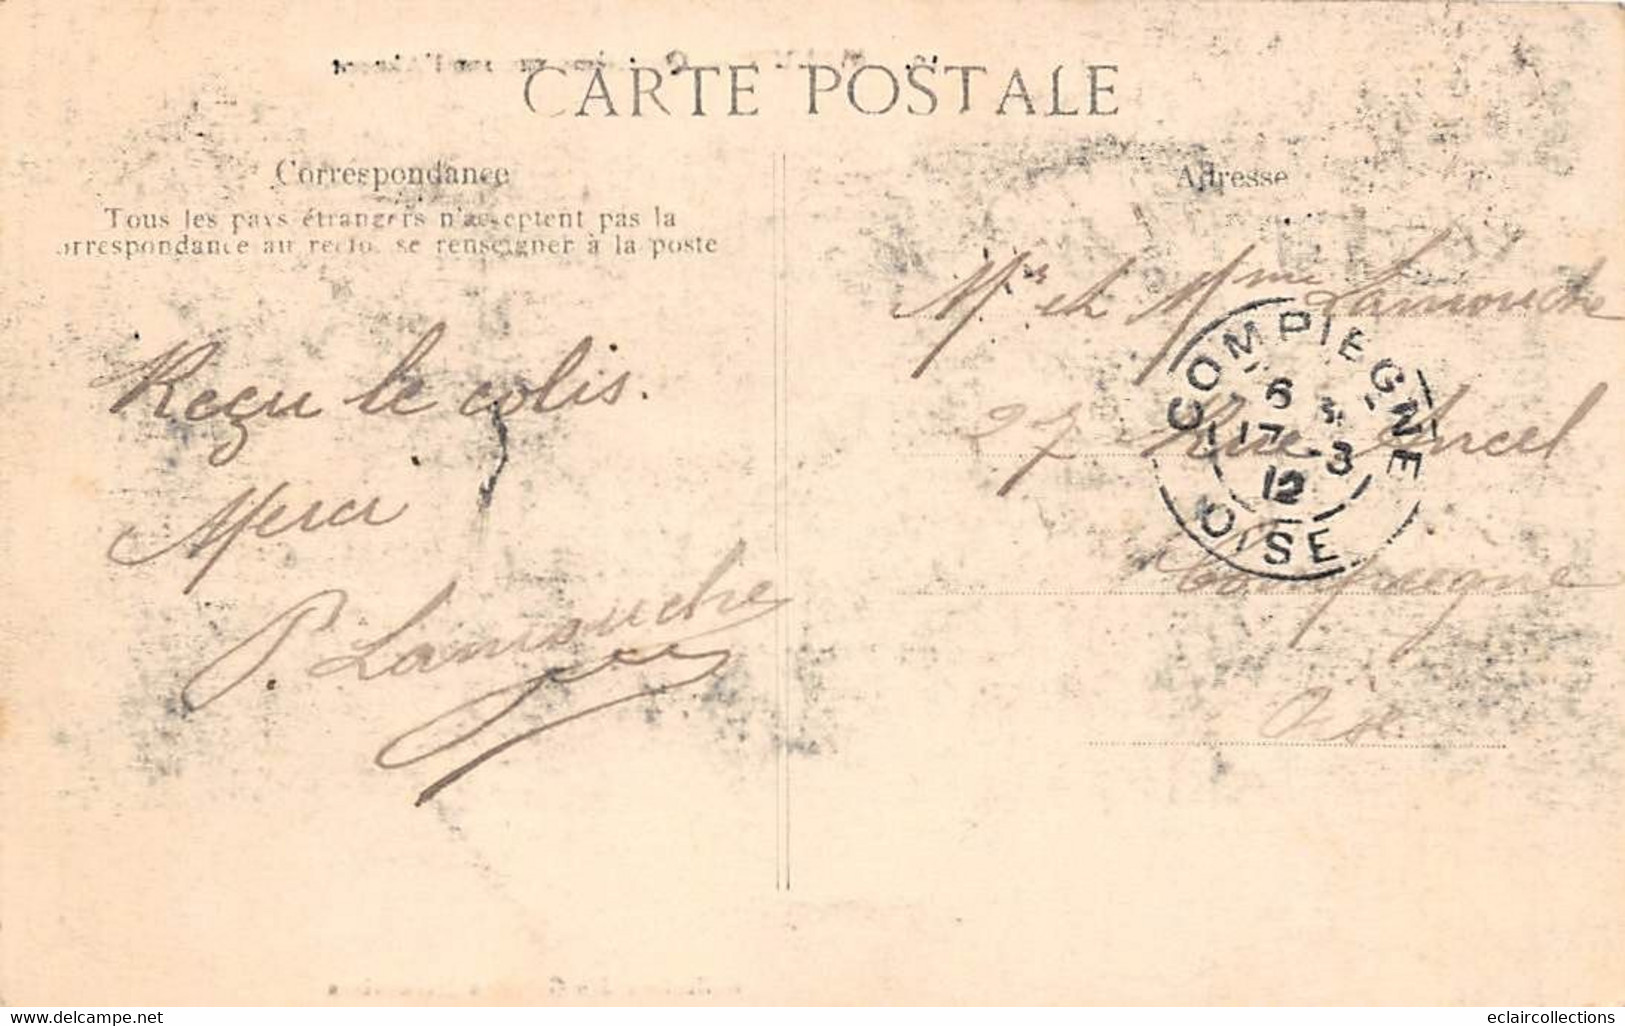 CARTE POSTALE
Correspondance
Tous les pays étrangers n'acceptent pas la
correspondance au recto, se renseigner à la poste
Reçu le colis.
Merci
P. Lamouche
Adresse
Mr et Mme Lamouche
27 Rue Arcel
Compiegne
Oise
COMPIEGNE
6
17-3
12
OISE
www.delcampe.net
eclaircollections